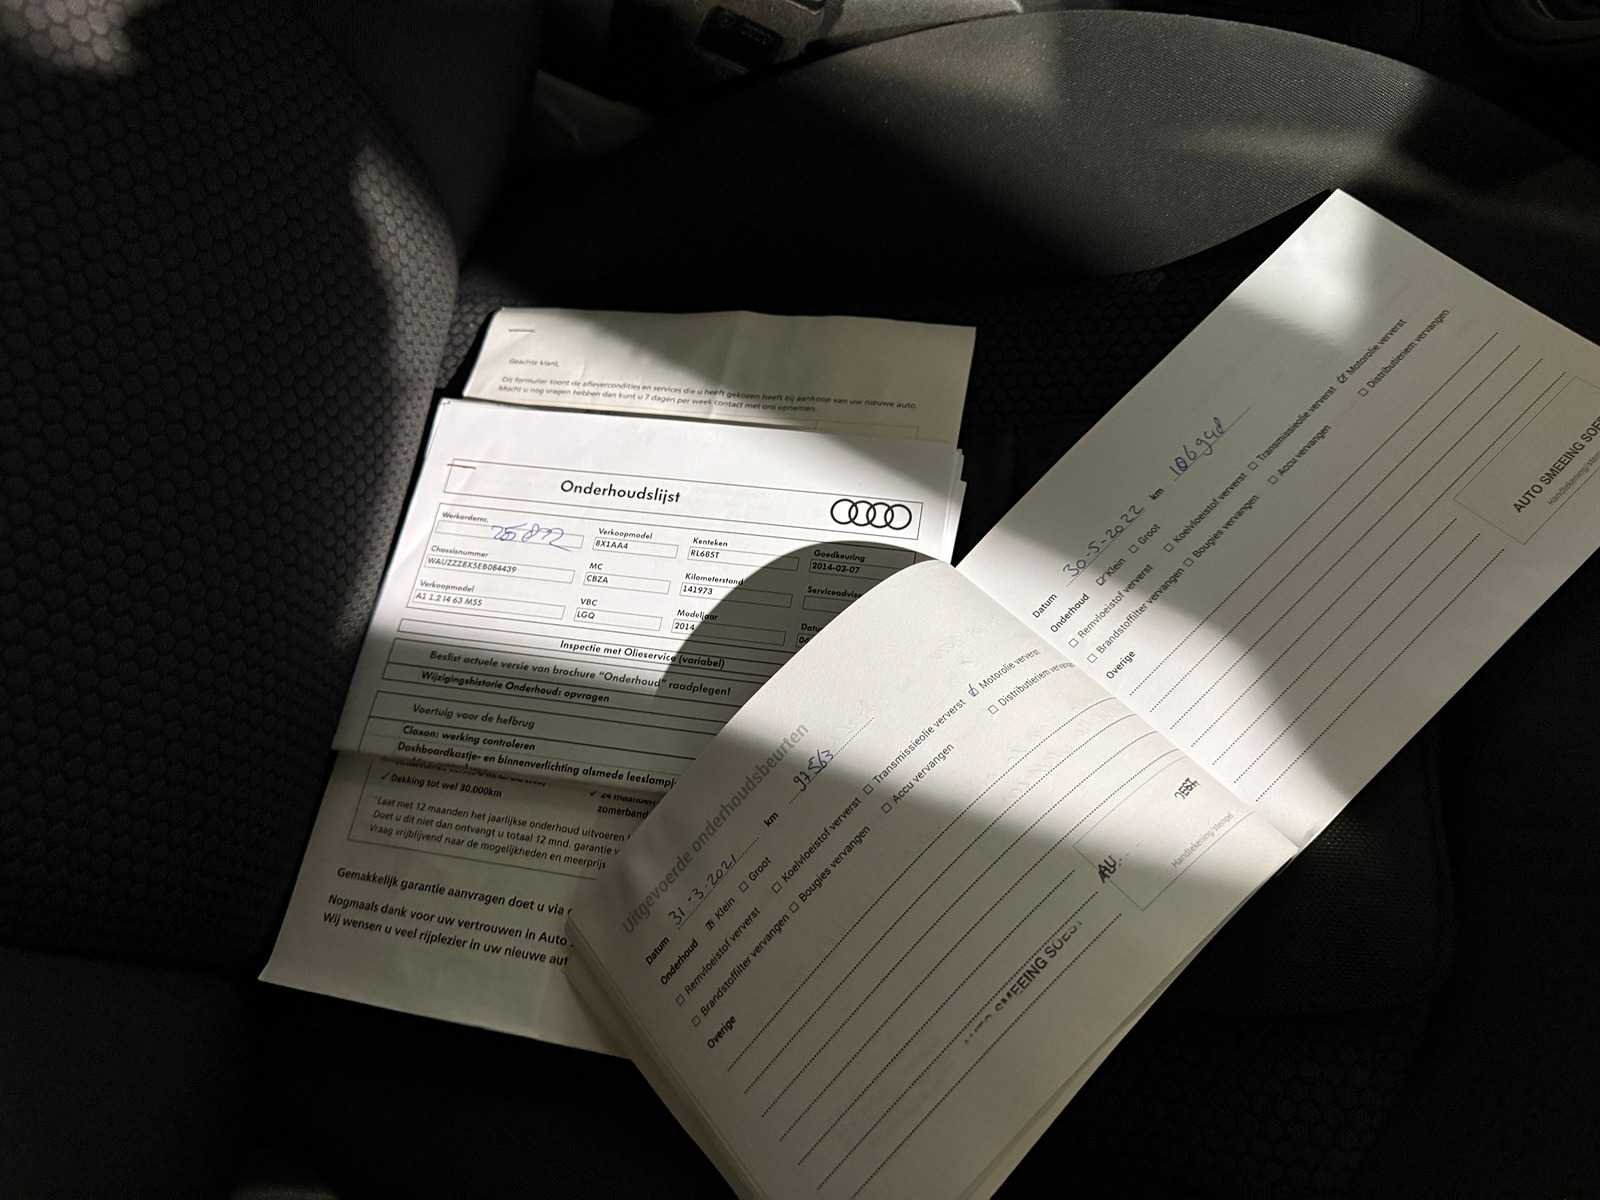 Geachte klant,
Dit formulier toont de aflevercondities en services die u heeft gekozen heeft bij aankoop van uw nieuwe auto.
Mocht u nog vragen hebben dan kunt u 7 dagen per week contact met ons opnemen.
Onderhoudslijst
Werkordernr.
Verkoopmodel
8X1AA4
Kenteken
RL685T
Goedkeuring
2014-03-07
Chassisnummer
WAUZZZ8X5EB084439
MC
CBZA
Kilometerstand
141973
Verkoopmodel
A1 1.2 I4 63 M5S
VBC
LGQ
Modeljaar
2014
Inspectie met Olieservice (variabel)
Beslist actuele versie van brochure "Onderhoud" raadplegen!
Wijzigingshistorie Onderhoud: opvragen
Voertuig voor de hefbrug
Claxon: werking controleren
Dashboardkastje- en binnenverlichting alsmede leeslampj
✓ Dekking tot wel 30.000km
Laat met 12 maanden het jaarlijkse onderhoud uitvoeren
Doet u dit niet dan ontvangt u totaal 12 mnd. garantie
Vraag vrijblijvend naar de mogelijkheden en meerprijs
Gemakkelijk garantie aanvragen doet u via
Nogmaals dank voor uw vertrouwen in Auto
Wij wensen u veel rijplezier in uw nieuwe aut
Uitgevoerde onderhoudsbeurten
Datum 31-3-2021 km 97563
Onderhoud Klein Groot
Remvloeistof ververst Koelvloeistof ververst Transmissieolie ververst Motorolie ververst
Brandstoffilter vervangen Bougies vervangen Accu vervangen Distributieriem vervangen
Overige
Handtekening/stempel
SMEEING SOEST
Datum 30-5-2022 km 106948
Onderhoud Klein Groot
Remvloeistof ververst Koelvloeistof ververst Transmissieolie ververst Motorolie ververst
Brandstoffilter vervangen Bougies vervangen Accu vervangen Distributieriem vervangen
Overige
AUTO SMEEING SOES
Handtekening/stempel